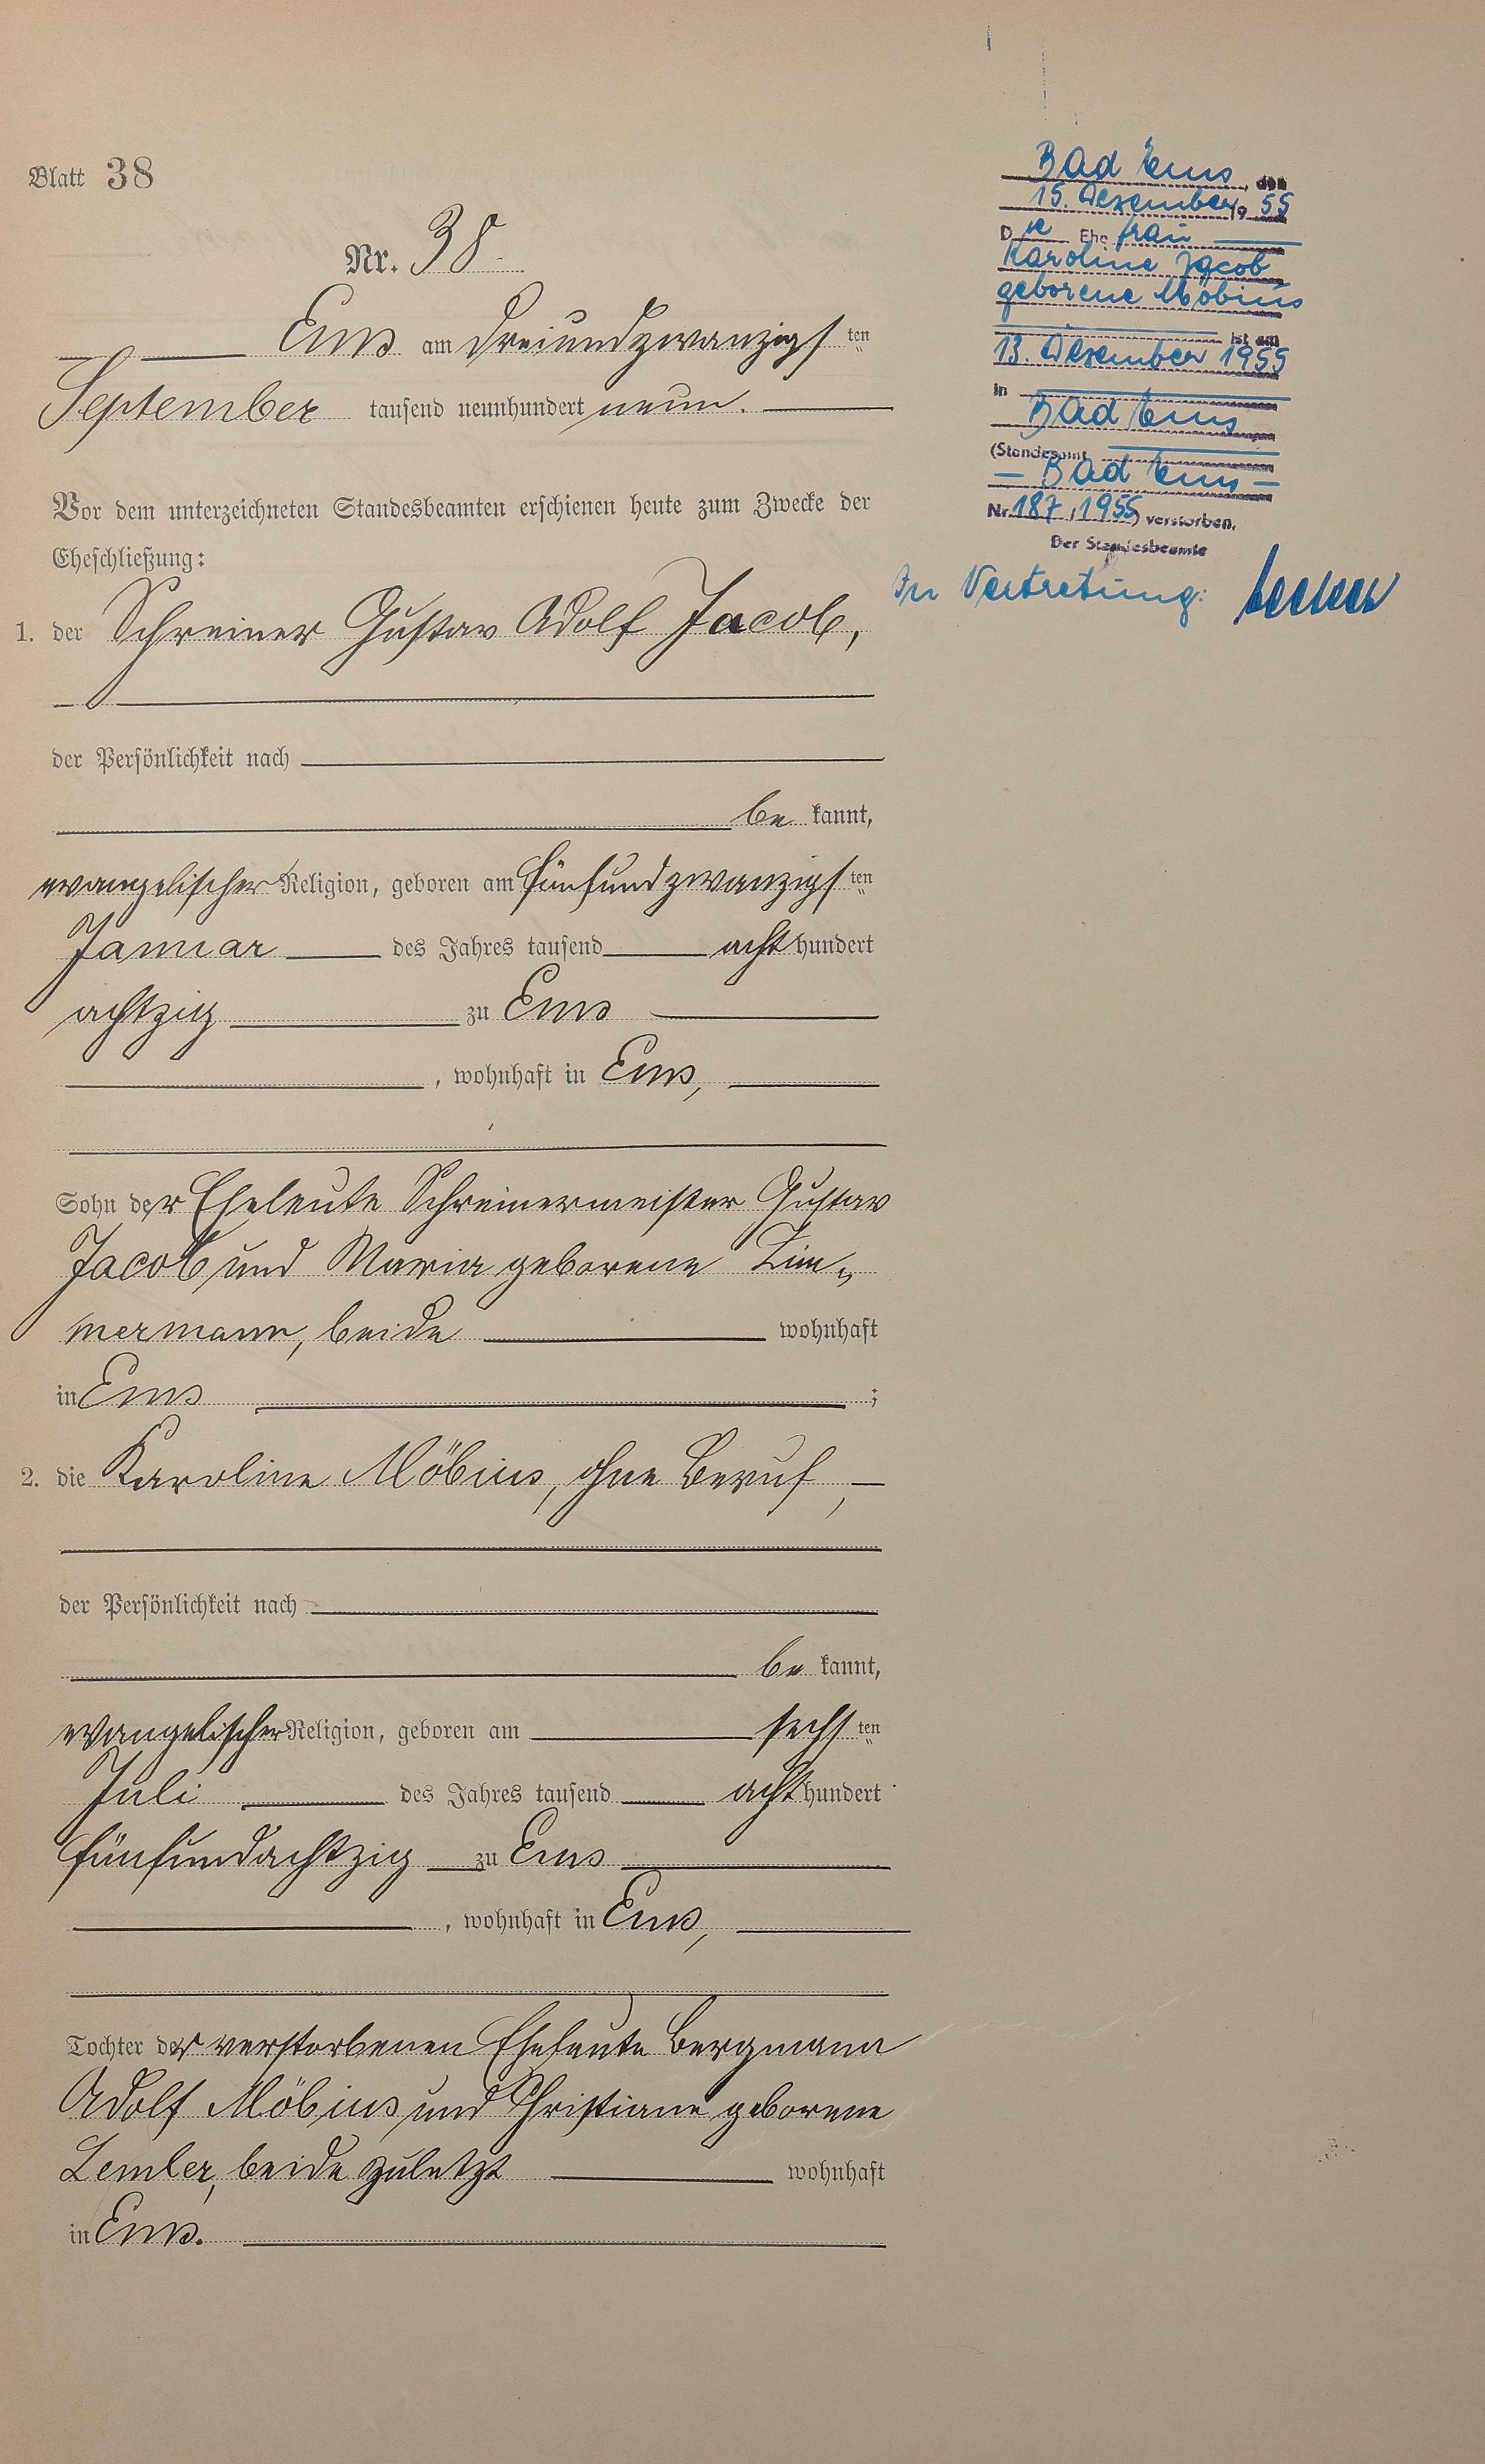 Blatt 38
Nr. 38.
Ems am dreiundzwanzigsten
September tausend neunhundert neun.
Vor dem unterzeichneten Standesbeamten erschienen heute zum Zwecke der
Eheschließung:
1. der Schreiner Gustav Adolf Jacob,
der Persönlichkeit nach
be kannt,
evangelischer Religion, geboren am fünfundzwanzigsten
Januar des Jahres tausend acht hundert
achtzig zu Ems
, wohnhaft in Ems,
Sohn der Eheleute Schreinermeister Gustav
Jacob und Maria geborene Zim„
mermann, beide wohnhaft
in Ems ;
2. die Karoline Möbius, ohne Beruf,
der Persönlichkeit nach
be kannt,
evangelischer Religion, geboren am sechsten
Juli des Jahres tausend acht hundert
fünfundachtzig zu Ems
, wohnhaft in Ems,
Tochter der verstorbenen Eheleute Bergmann
Adolf Möbius und Christiane geborene
Lemler, beide zuletzt wohnhaft
in Ems.
Bad Ems, den
15. Dezember 19 55
Die Ehefrau
Karoline Jacob
geborene Möbius
ist am
13. Dezember 1955
in
Bad Ems
(Standesamt
– Bad Ems –
Nr. 187/1955) verstorben.
Der Standesbeamte
In Vertretung: Becker